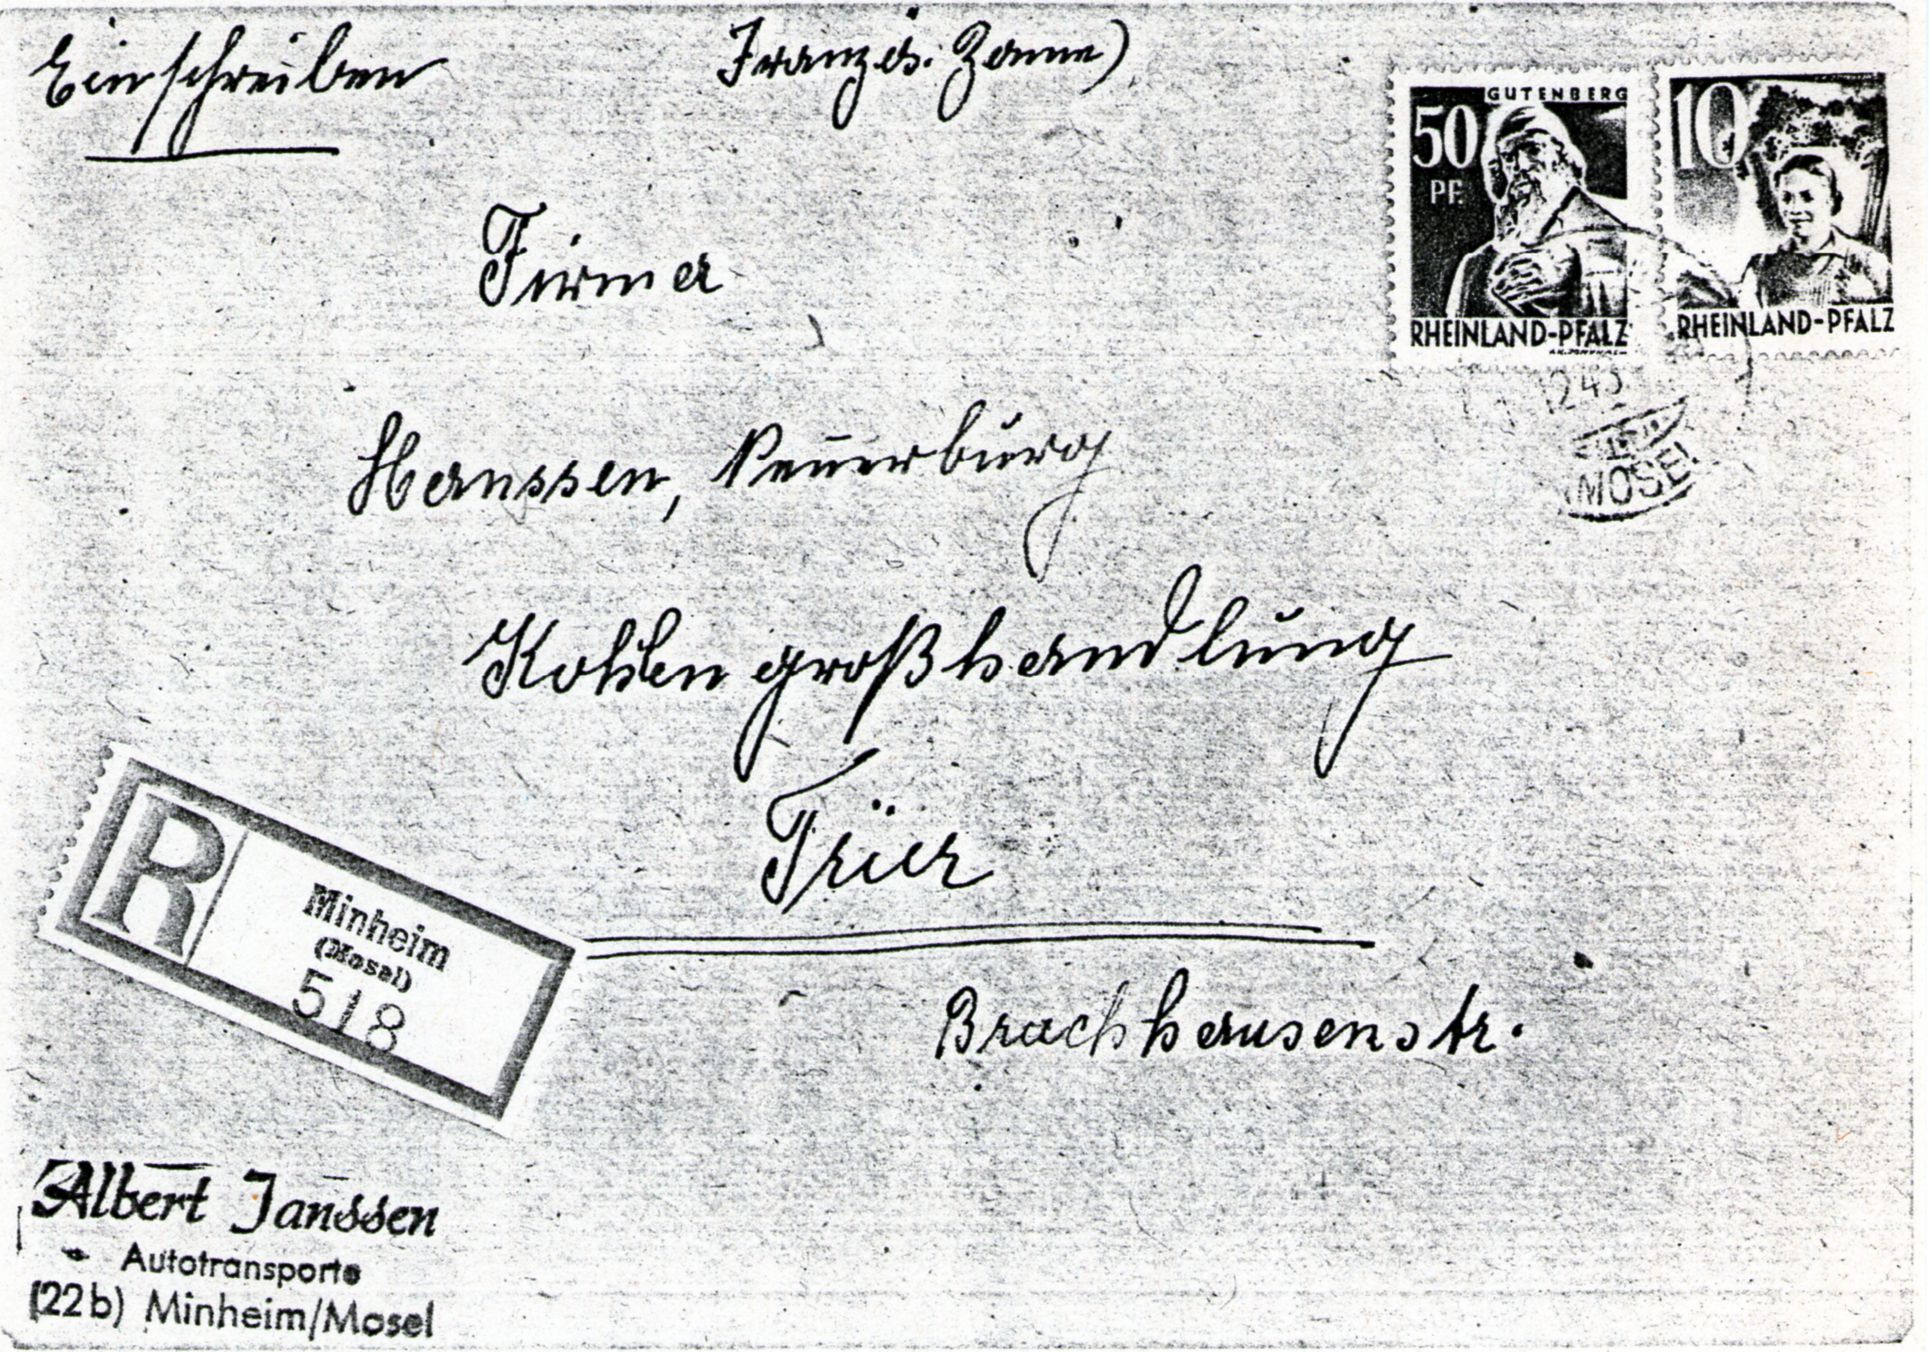 Einschreiben
Französ. Zone)
GUTENBERG
50
PF.
RHEINLAND-PFALZ
10
RHEINLAND-PFALZ
MOSEL
Firma
Hanssen, Neuerburg
Kohlengroßhandlung
Trier
Bruchhausenstr.
R
Minheim
(Mosel)
518
Albert Janssen
Autotransporte
(22b) Minheim/Mosel